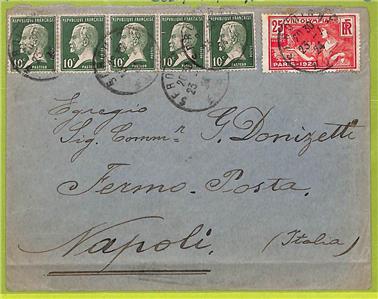 REPUBLIQUE FRANÇAISE REPUBLIQUE FRANÇAISE REPUBLIQUE FRANÇAISE REPUBLIQUE FRANÇAISE REPUBLIQUE FRANÇAISE
10c 10c 10c 10c 10c 25c RF
PASTEUR PASTEUR PASTEUR PASTEUR PASTEUR PARIS-1924
Egregio
Sig. Comm.r G. Donizetti
Fermo-Posta.
Napoli.
(Italia)